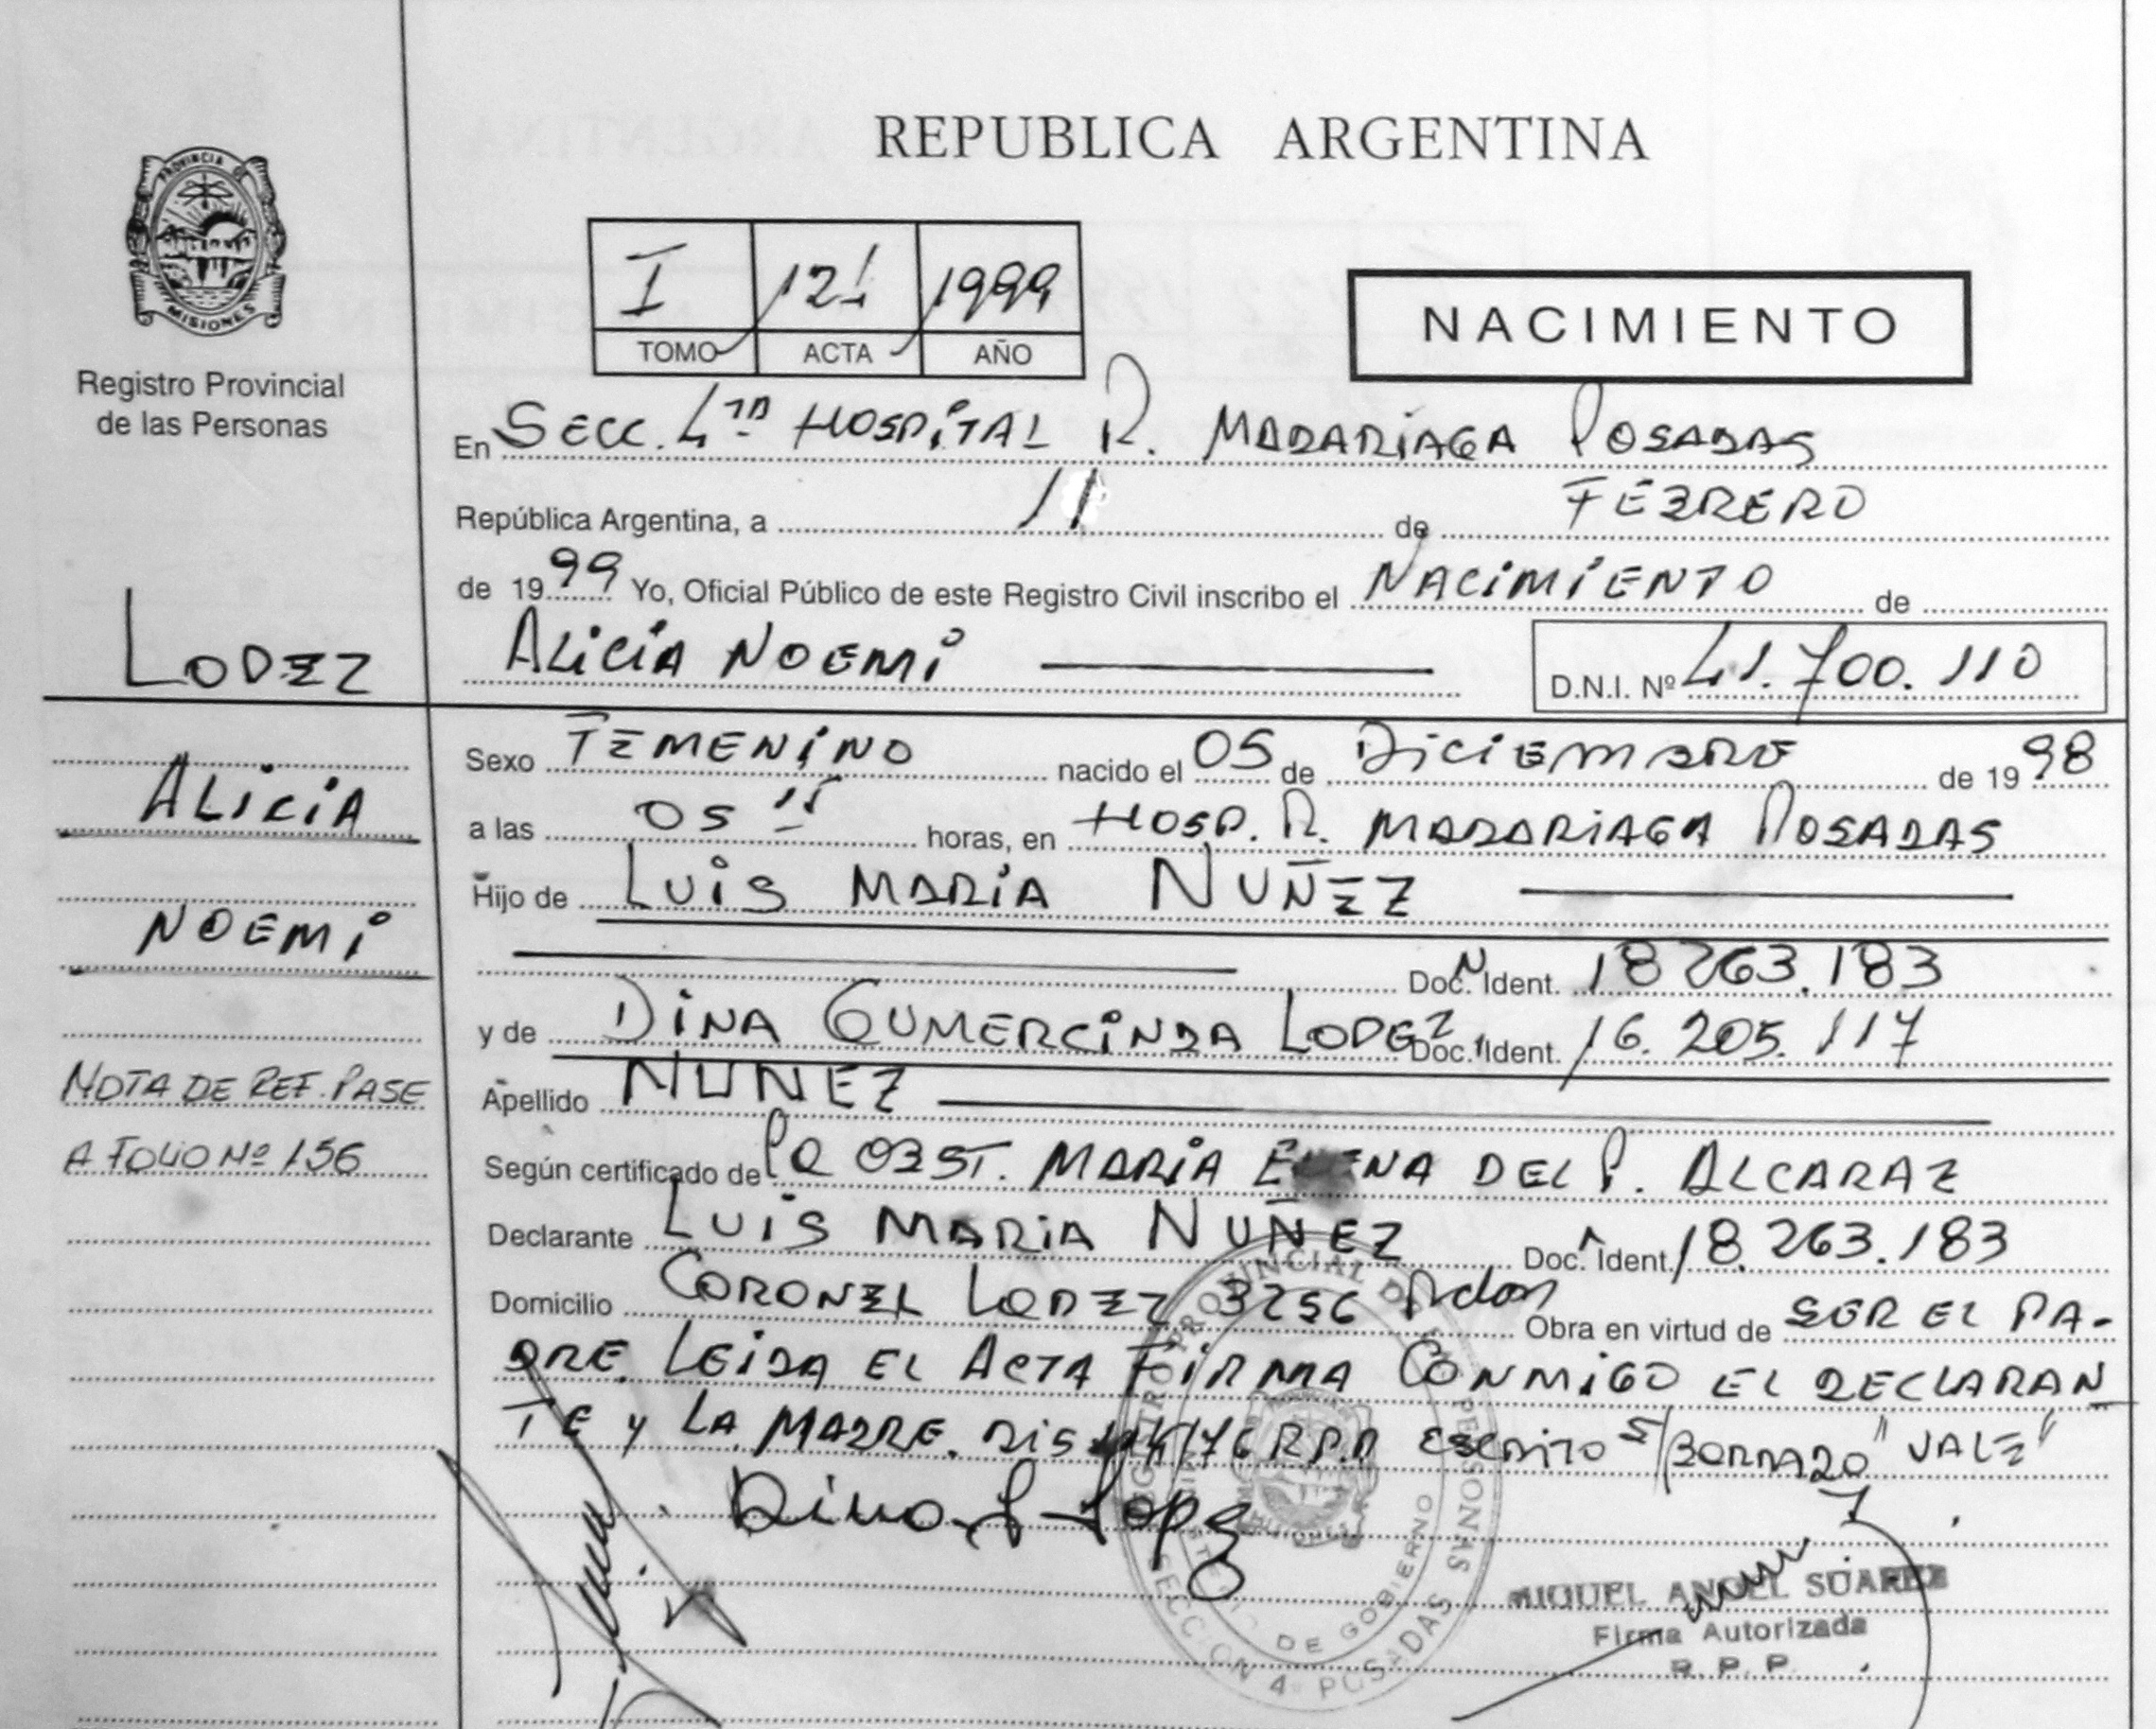 REPUBLICA ARGENTINA
PROVINCIA DE
MISIONES
Registro Provincial
de las Personas
I 121 1999
TOMO ACTA AÑO
NACIMIENTO
En SECC. 4ta HOSPITAL R. MADARIAGA POSADAS
República Argentina, a 11 de FEBRERO
de 1999 Yo, Oficial Público de este Registro Civil inscribo el NACIMIENTO de
LOPEZ
ALICIA NOEMI
D.N.I. Nº 41.700.110
Sexo FEMENINO nacido el 05 de DICIEMBRE de 1998
ALICIA
a las 05 15 horas, en HOSP. R. MADARIAGA POSADAS
Hijo de LUIS MARIA NUÑEZ
NOEMI
Doc. Ident. 18 263.183
y de DINA GUMERCINDA LOPEZ Doc. Ident. 16.205.117
NOTA DE REF. PASE
Apellido NUÑEZ
A FOLIO Nº 156
Según certificado de la OBST. MARIA ELENA DEL P. ALCARAZ
Declarante LUIS MARIA NUÑEZ Doc. Ident. 18.263.183
Domicilio CORONEL LOPEZ 3256 Pdas Obra en virtud de SER EL PA-
DRE. LEIDA EL ACTA FIRMA CONMIGO EL DECLARAN
TE Y LA MADRE. DIS /76 R.P.P ESCRITO S/BORRADO "VALE"
Dina G Lopez
REGISTRO PROVINCIAL DE LAS PERSONAS
MINISTERIO DE GOBIERNO
SECCION 4ª POSADAS
MIGUEL ANGEL SUAREZ
Firma Autorizada
R. P. P.